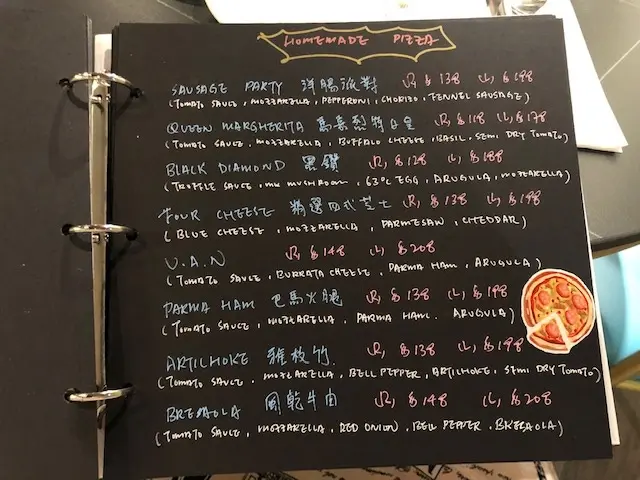 HOMEMADE PIZZA
SAUSAGE PARTY 洋腸派對 R, $138 L, $198
(TOMATO SAUCE, MOZZARELLA, PEPPERONI, CHORIZO, FENNEL SAUSAGE)
QUEEN MARGHERITA 瑪嘉烈特女皇 R, $118 L, $178
(TOMATO SAUCE, MOZZARELLA, BUFFLO CHEESE, BASIL, SEMI DRY TOMATO)
BLACK DIAMOND 黑鑽 R, $128 L, $188
(TRUFFLE SAUCE, MIX MUSHROOM, 63°C EGG, ARUGULA, MOZZARELLA)
FOUR CHEESE 精選四式芝士 R, $138 L, $198
(BLUE CHEESE, MOZZARELLA, PARMESAN, CHEDDAR)
V.A.N R, $148 L, $208
(TOMATO SAUCE, BURRATA CHEESE, PARMA HAM, ARUGULA)
PARMA HAM 巴馬火腿 R, $138 L, $198
(TOMATO SAUCE, MOZZARELLA, PARMA HAM, ARUGULA)
ARTICHOKE 雅枝竹 R, $138 L, $198
(TOMATO SAUCE, MOZZARELLA, BELL PEPPER, ARTICHOKE, SEMI DRY TOMATO)
BRESAOLA 風乾牛肉 R, $148 L, $208
(TOMATO SAUCE, MOZZARELLA, RED ONION, BELL PEPPER, BRESAOLA)